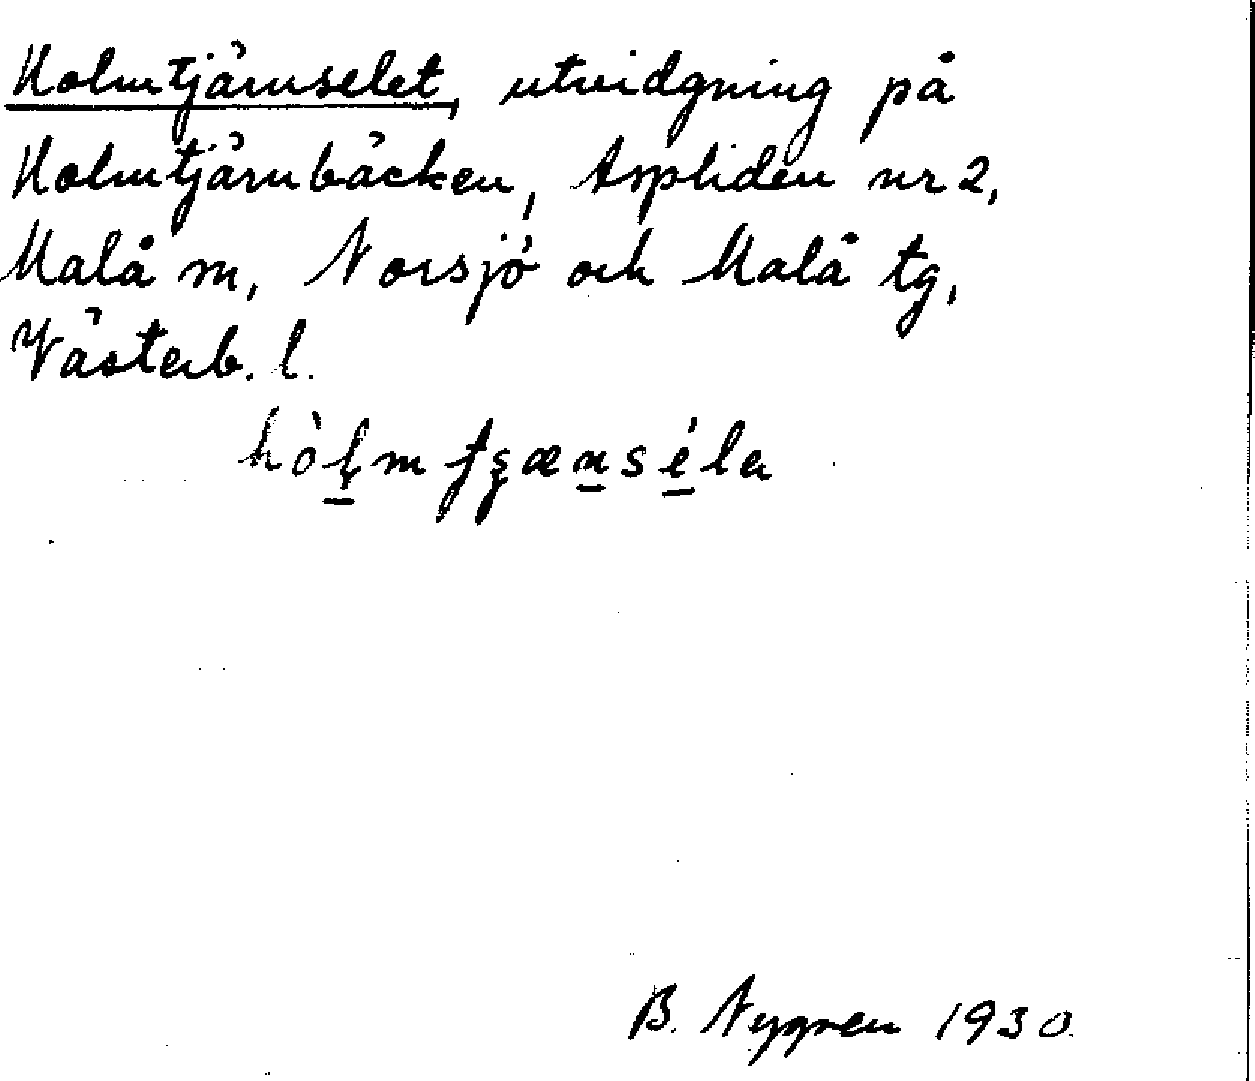 Holmtjärnselet, utvidgning på
Holmtjärnbäcken, Aspliden nr 2,
Malå m, Norsjö och Malå tg,
Västerb. l.
B. Nygren 1930